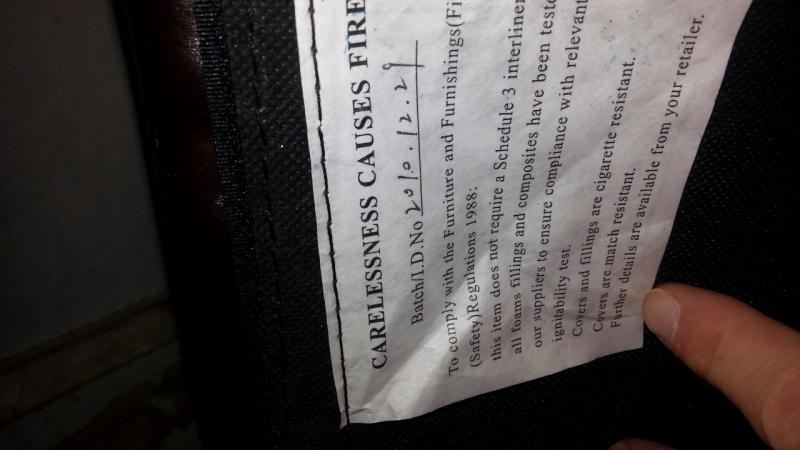 CARELESSNESS CAUSES FIRE
Batch/I.D.No 2010.12.29
To comply with the Furniture and Furnishings(Fi
(Safety)Regulations 1988:
this item does not require a Schedule 3 interliner
all foams fillings and composites have been teste
our suppliers to ensure compliance with relevant
ignitability test.
Covers and fillings are cigarette resistant.
Covers are match resistant.
Further details are available from your retailer.